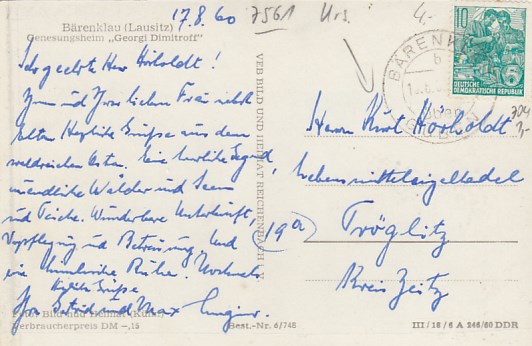 17.8.60 7561 Urs. 4,-
Bärenklau (Lausitz)
Genesungsheim „Georgi Dimitroff"
Sehr geehrter Herr Hörholdt!
Ihnen und Ihrer lieben Frau recht
herzliche Grüße aus dem
waldreichen Osten. Eine herrliche Gegend,
unendliche Wälder und Seen
und Teiche. Wunderbare Unterkunft,
Verpflegung und Betreuung. Und
eine himmlische Ruhe. Nochmals
herzliche Grüße
Ihre und Max
Foto: Bild und Heimat
Verbraucherpreis DM –,15
Best.-Nr. 6/748
VEB BILD UND HEIMAT REICHENBACH i. V.
BÄRENKLAU
b
10
DEUTSCHE
DEMOKRATISCHE REPUBLIK
704
3,-
Herrn Kurt Hörholdt
Lebensmitteleinzelhandel
(19a) Tröglitz
Kreis Zeitz
III/18/6 A 246/60 DDR